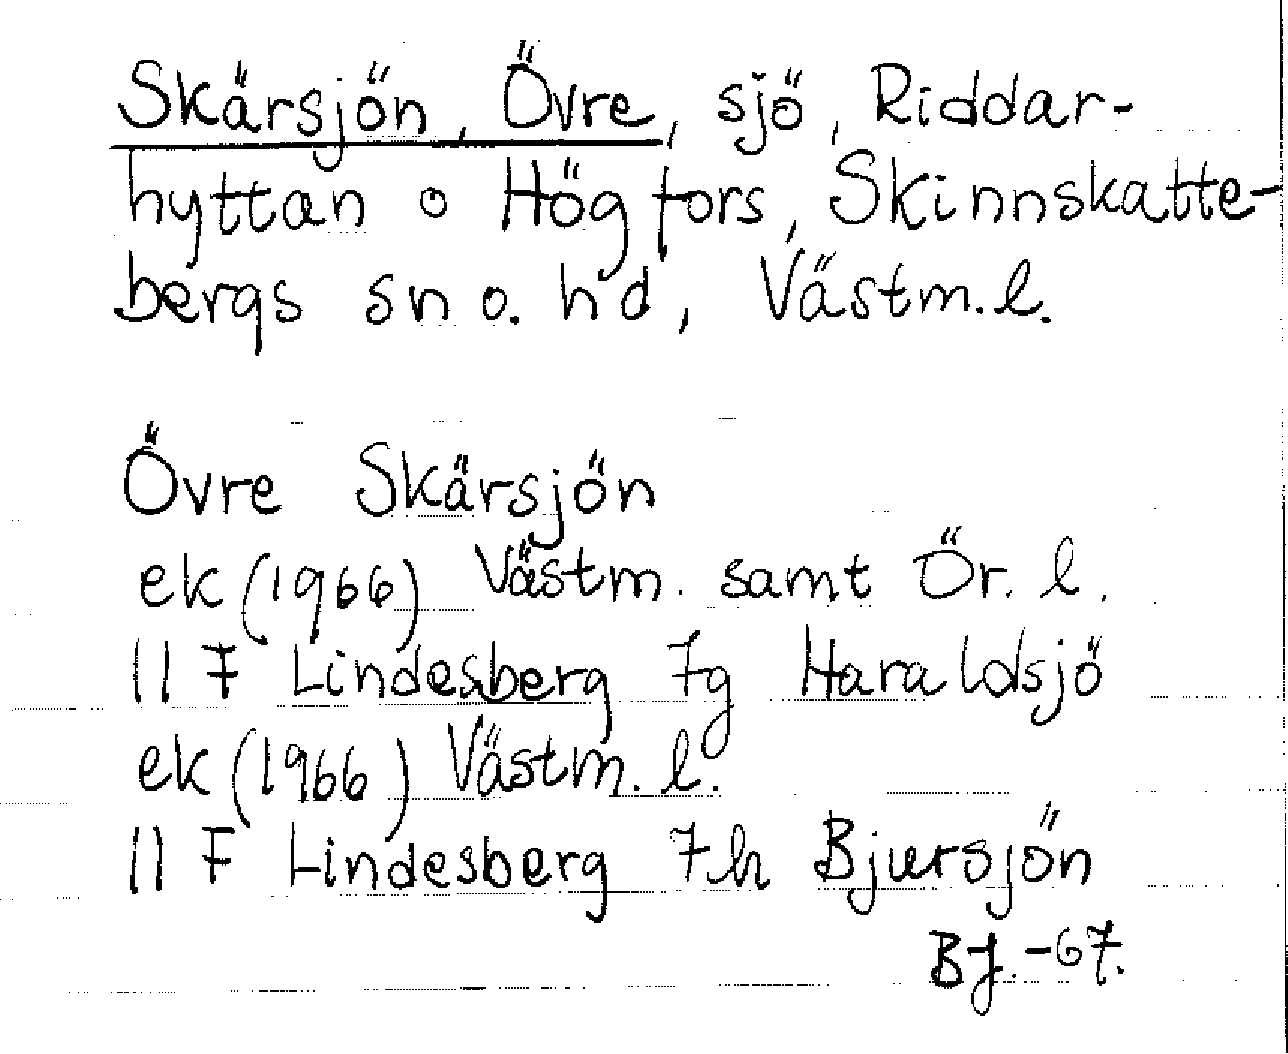 Skärsjön, Övre, sjö, Riddar-
hyttan o Högfors, Skinnskatte-
bergs sn o. hd, Västm. l.
Övre Skärsjön
ek (1966) Västm. samt Ör. l.
11 F Lindesberg 7g Haraldsjö
ek (1966) Västm. l.
11 F Lindesberg 7h Bjursjön
BJ. -67.